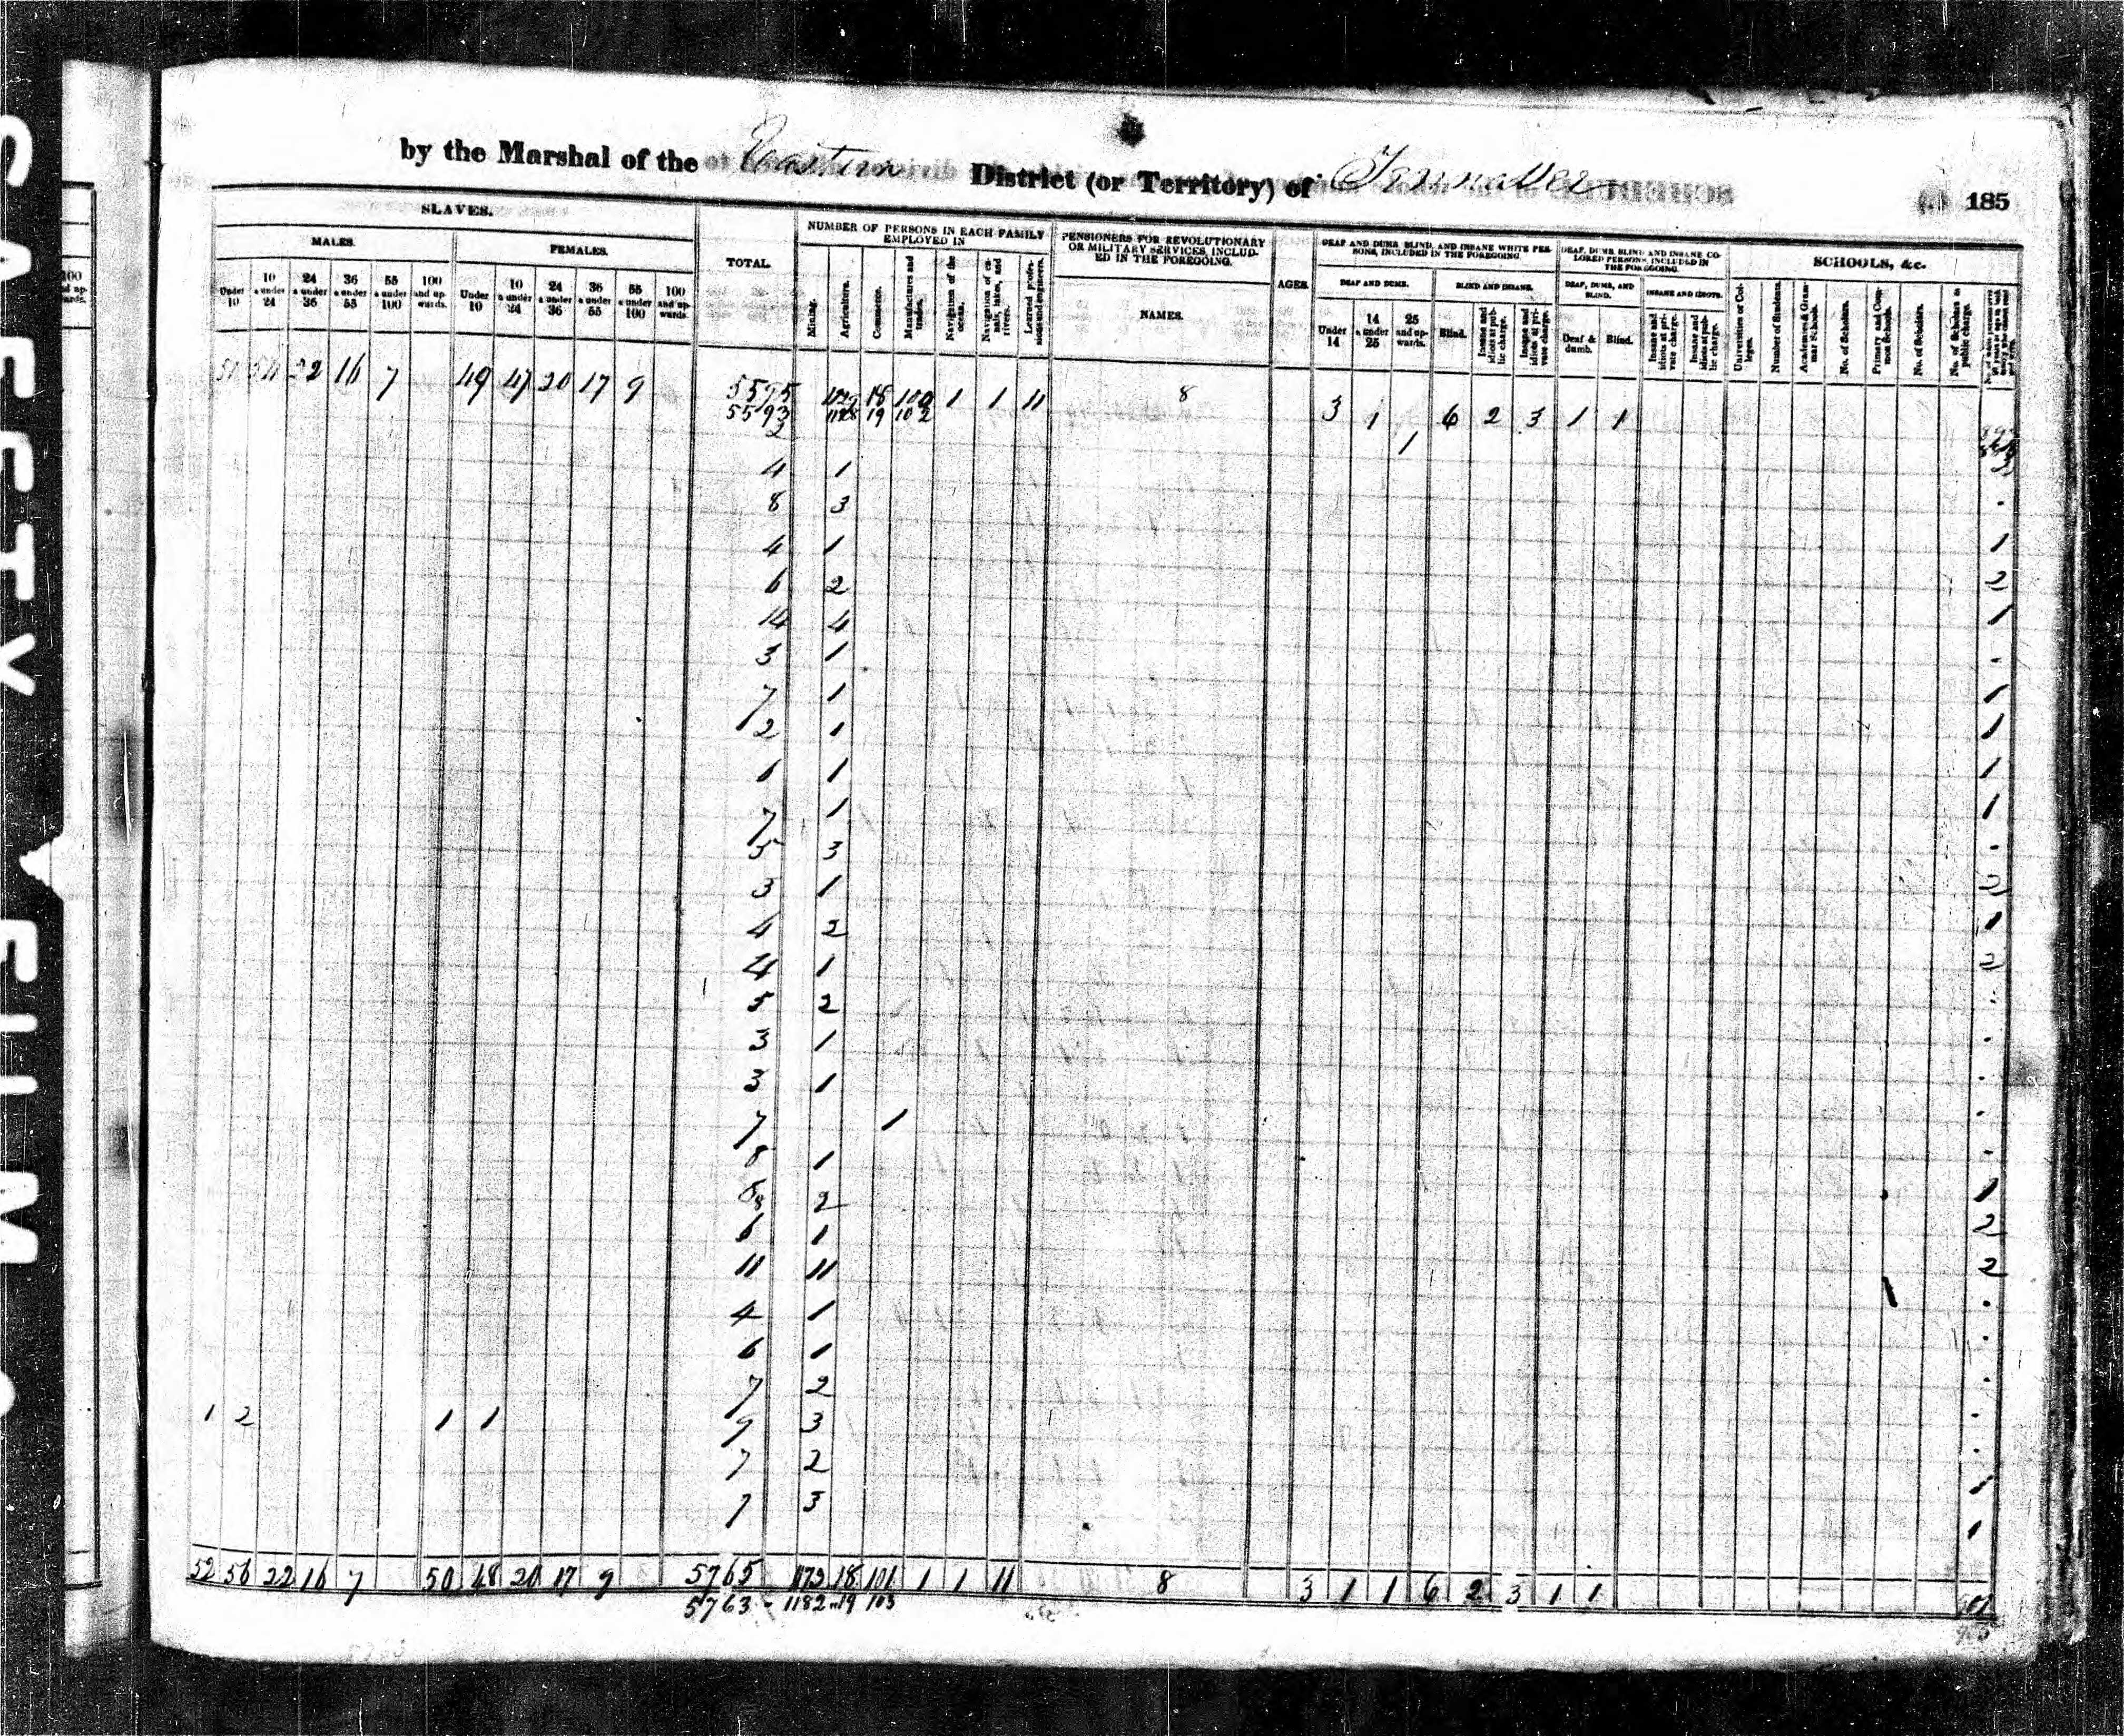 SAFETY FILM
by the Marshal of the Eastern District (or Territory) of Tennessee
185
SLAVES.
MALES.
FEMALES.
TOTAL.
NUMBER OF PERSONS IN EACH FAMILY EMPLOYED IN
PENSIONERS FOR REVOLUTIONARY OR MILITARY SERVICES, INCLUDED IN THE FOREGOING.
AGES.
DEAF AND DUMB, BLIND, AND INSANE WHITE PERSONS, INCLUDED IN THE FOREGOING.
DEAF, DUMB, BLIND AND INSANE COLORED PERSONS, INCLUDED IN THE FOREGOING.
SCHOOLS, &c.
Under 10
10 & under 24
24 & under 36
36 & under 55
55 & under 100
100 and upwards.
Under 10
10 & under 24
24 & under 36
36 & under 55
55 & under 100
100 and upwards.
Mining.
Agriculture.
Commerce.
Manufactures and trades.
Navigation of the ocean.
Navigation of canals, lakes, and rivers.
Learned professions and engineers.
NAMES.
DEAF AND DUMB.
BLIND AND INSANE.
DEAF, DUMB, AND BLIND.
INSANE AND IDIOTS.
Under 14
14 & under 25
25 and upwards.
Blind.
Insane and idiots at public charge.
Insane and idiots at private charge.
Deaf & dumb.
Blind.
Insane and idiots at private charge.
Insane and idiots at public charge.
Universities or Colleges.
Number of Students.
Academies & Grammar Schools.
No. of Scholars.
Primary and Common Schools.
No. of Scholars.
No. of Scholars at public charge.
22 16 7 49 47 20 17 9 5595 18 100 1 1 11 8 3 1 6 2 3 1 1
5593 1128 19 102 1
2
4 1
8 3
4 1 1
6 2 2
14 4 1
3 1
7 1 1
2 1 1
6 1 1
7 1 1
5 3
3 1 2
4 2 1
4 1 2
5 2
3 1
3 1
7 1
8 1
8 2 1
6 1 2
11 11 2
4 1
6 1
7 2
1 2 1 1 9 3
7 2
7 3 1
1
52 56 22 16 7 50 48 20 17 9 5765 1172 18 101 1 1 11 8 3 1 1 6 2 3 1 1
5763 - 1182 19 103